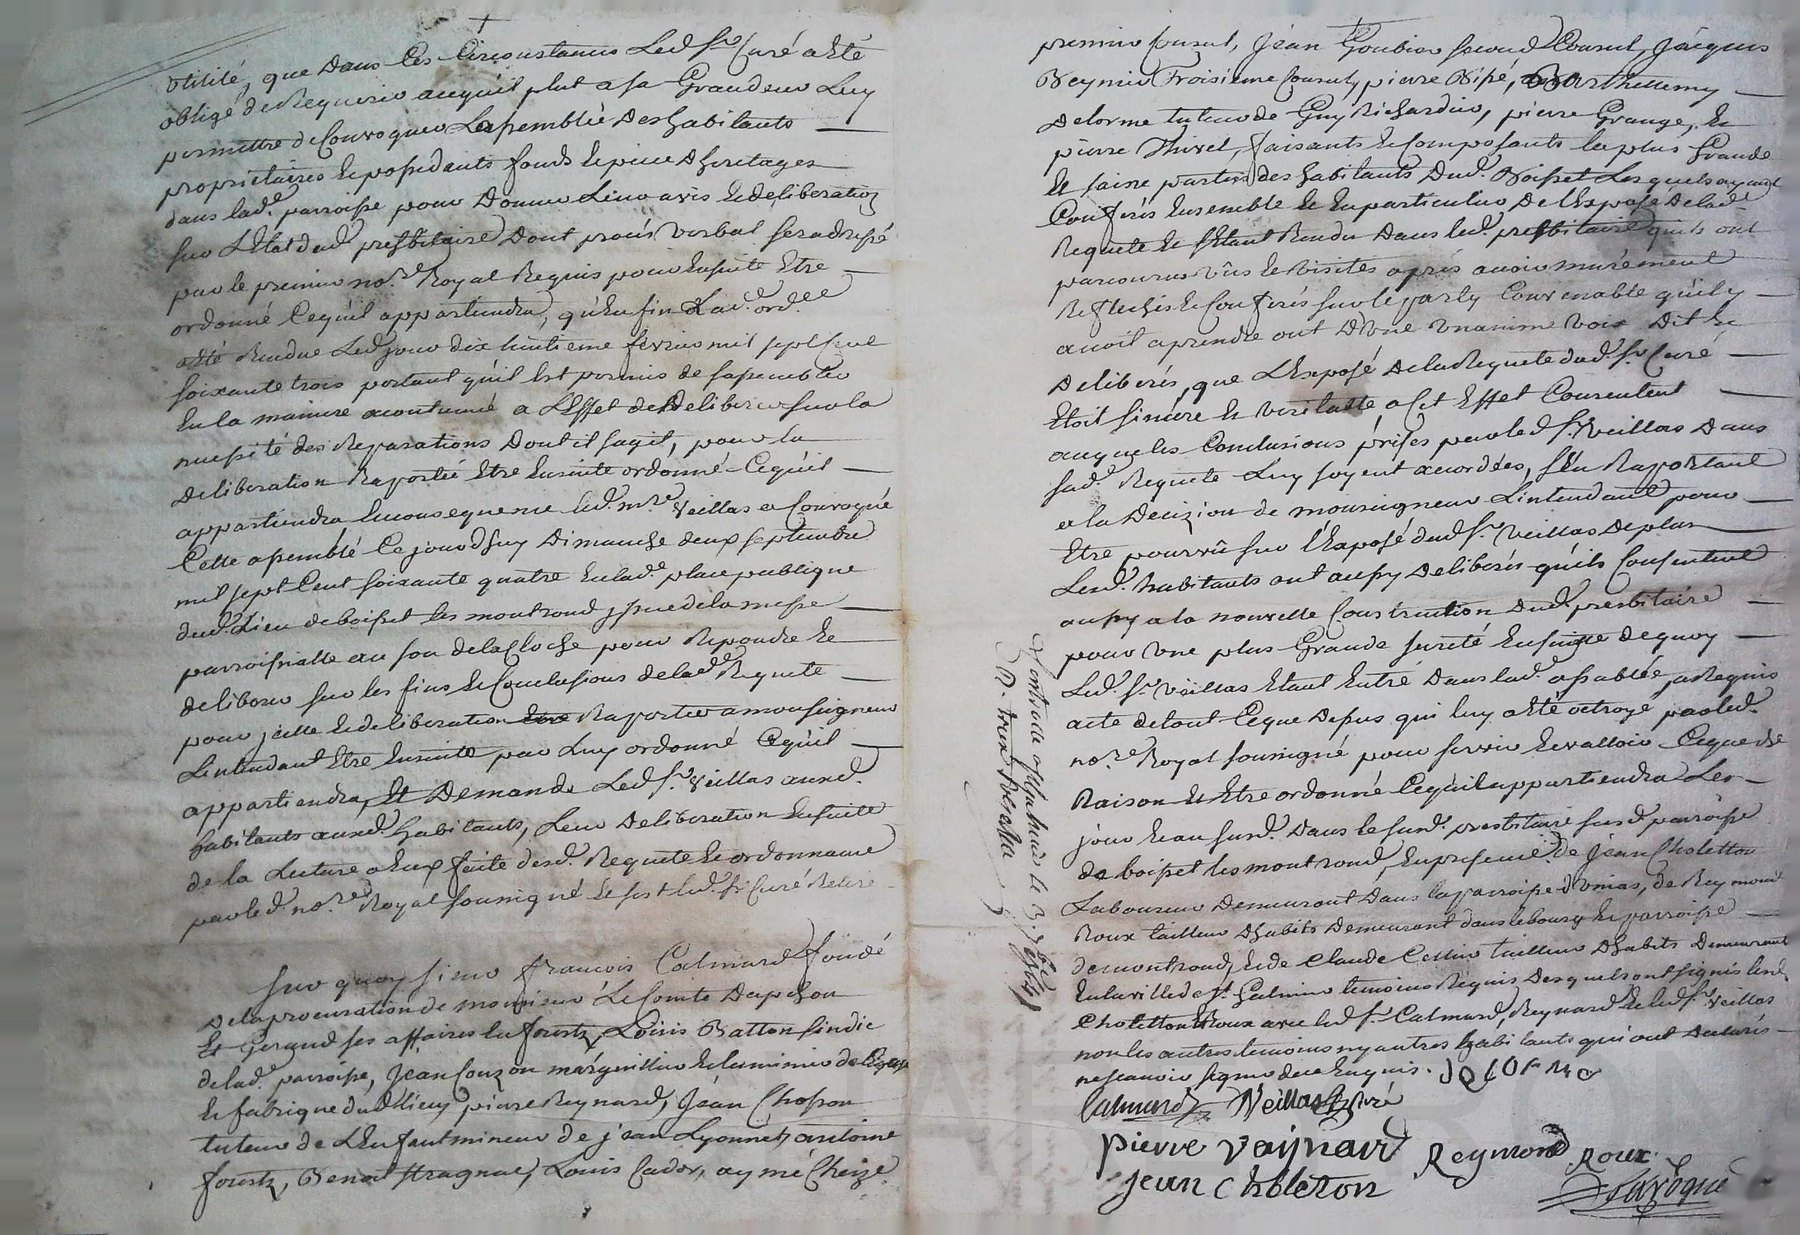 utilité, que dans ces circonstances led. sr. curé a eté
obligé de requerir acequ'il plut a sa Grandeur luy
permettre de convoquer l'assemblée des habitants
proprietaires et possedants fonds et piece d'heritages
dans lad. parroisse pour donner leur avis et deliberation
sur l'état dud. presbitaire dont procés verbal sera dressé
par le premier no.re Royal requis pour ensuite etre
ordonné cequ'il appartiendra, qu'enfin lad. ord.ce
a eté rendue led. jour dix huitieme fevrier mil sept cent
soixante trois portant qu'il est permis de s'assembler
en la maniere acoutumé a l'effet de deliberer sur la
necessité des reparations dont il s'agit, pour la
deliberation raportée etre ensuite ordonné cequ'il
appartiendra en consequence led. m.re Veillas a convoqué
cette assemblé cejourd'huy dimanche deux septembre
mil sept cent soixante quatre en lad. place publique
dud. lieu de boisset les montrond issue de la messe
parroissialle au son de la cloche pour repondre et
deliberer sur les fins et conclusions de lad. requete
pour icelle et deliberation raportée a monseigneur
l'intendant etre ensuite par luy ordonné cequ'il
appartiendra, et demande led. sr. Veillas auxd.
habitants auxd. habitants, leur deliberation ensuite
de la lecture a eux faite desd. requete et ordonnance
par led. no.re Royal soussigné et s'est led. sr. curé retiré
Sur quoy sieur françois Calmard fondé
de la procuration de monsieur le Comte Dapchon
et gerand ses affaires en forestz, Louis Batton sindic
de lad. parroisse, Jean Couzon marguillier et luminier de l'eglise
et fabrique dud. lieu, pierre Reynard, Jean Chosson
tuteur de l'enfant mineur de jean Lyonnet, antoine
forestz, Benoit Hragnac, Louis Cador, aymé Cheize
premier Consul, Jean Goubier second Consul, Jacques
Reynier Troisieme Consul, pierre Vipé, Barthellemy
Delorme tuteur de Guy Richardier, pierre Grange, et
pierre Thivel, faisants et composants la plus Grande
et saine partie des habitants dud. Boisset lesquels ayant
conferés ensemble et en particulier de l'exposé de lad.
requete et s'étant rendu dans led. presbitaire qu'ils ont
parcourus vûs et visités apres avoir murement
reflechis et conferés sur le party convenable qu'il y
avoit a prendre ont d'une unanime voix dit et
deliberés, que l'exposé de la requete dud. sr. curé
etoit sincere et veritable a cet effet consentent
auque les conclusions prises par led. sr. Veillas dans
sad. requete luy soyent accordées, s'en raportant
a la decizion de monseigneur l'intendant pour
etre pourvû sur l'exposé dud. sr. Veillas de plus
lesd. habitants ont aussy deliberés qu'ils consentent
aussy a la nouvelle construction dud. presbitaire
pour une plus grande sureté ensuitte de quoy
led. sr. Veillas etant entré dans lad. assablée, a requis
acte de tout ceque dessus qui luy a eté octroyé par led.
no.re Royal soussigné pour servir et valloir ceque de
raison et etre ordonné cequ'il appartiendra les
jour et an susd. dans le susd. presbitaire susd. parroisse
de boisset les montrond, en presence de Jean Choletton
laboureur demeurant dans la parroisse d'unias, de Reymond
Roux tailleur d'habits demeurant dans le bourg et parroisse
de montrond, et de Claude Cellier tailleur d'habits demeurant
en la ville de st. Galmier temoins requis desquels ont signés lesd.
Choletton Roux avec led. sr. Calmard, Reynard et led. sr. Veillas
non les autres temoins ny autres habitants qui ont declarés
ne scavoir signer de ce enquis. delorme
Calmard Veillas Curé
pierre vaijnard Reymond Roux
jean choleton Laroque